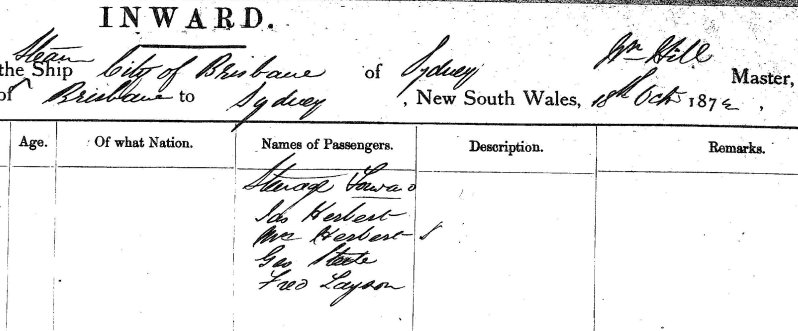 INWARD.
Steam
the Ship City of Brisbane of Sydney Wm Hill Master,
of Brisbane to Sydney , New South Wales, 18th Oct 1872 ,
Age. Of what Nation. Names of Passengers. Description. Remarks.
Steerage Forward
Jas Herbert
Mrs Herbert
Geo Steele
Fred Layson